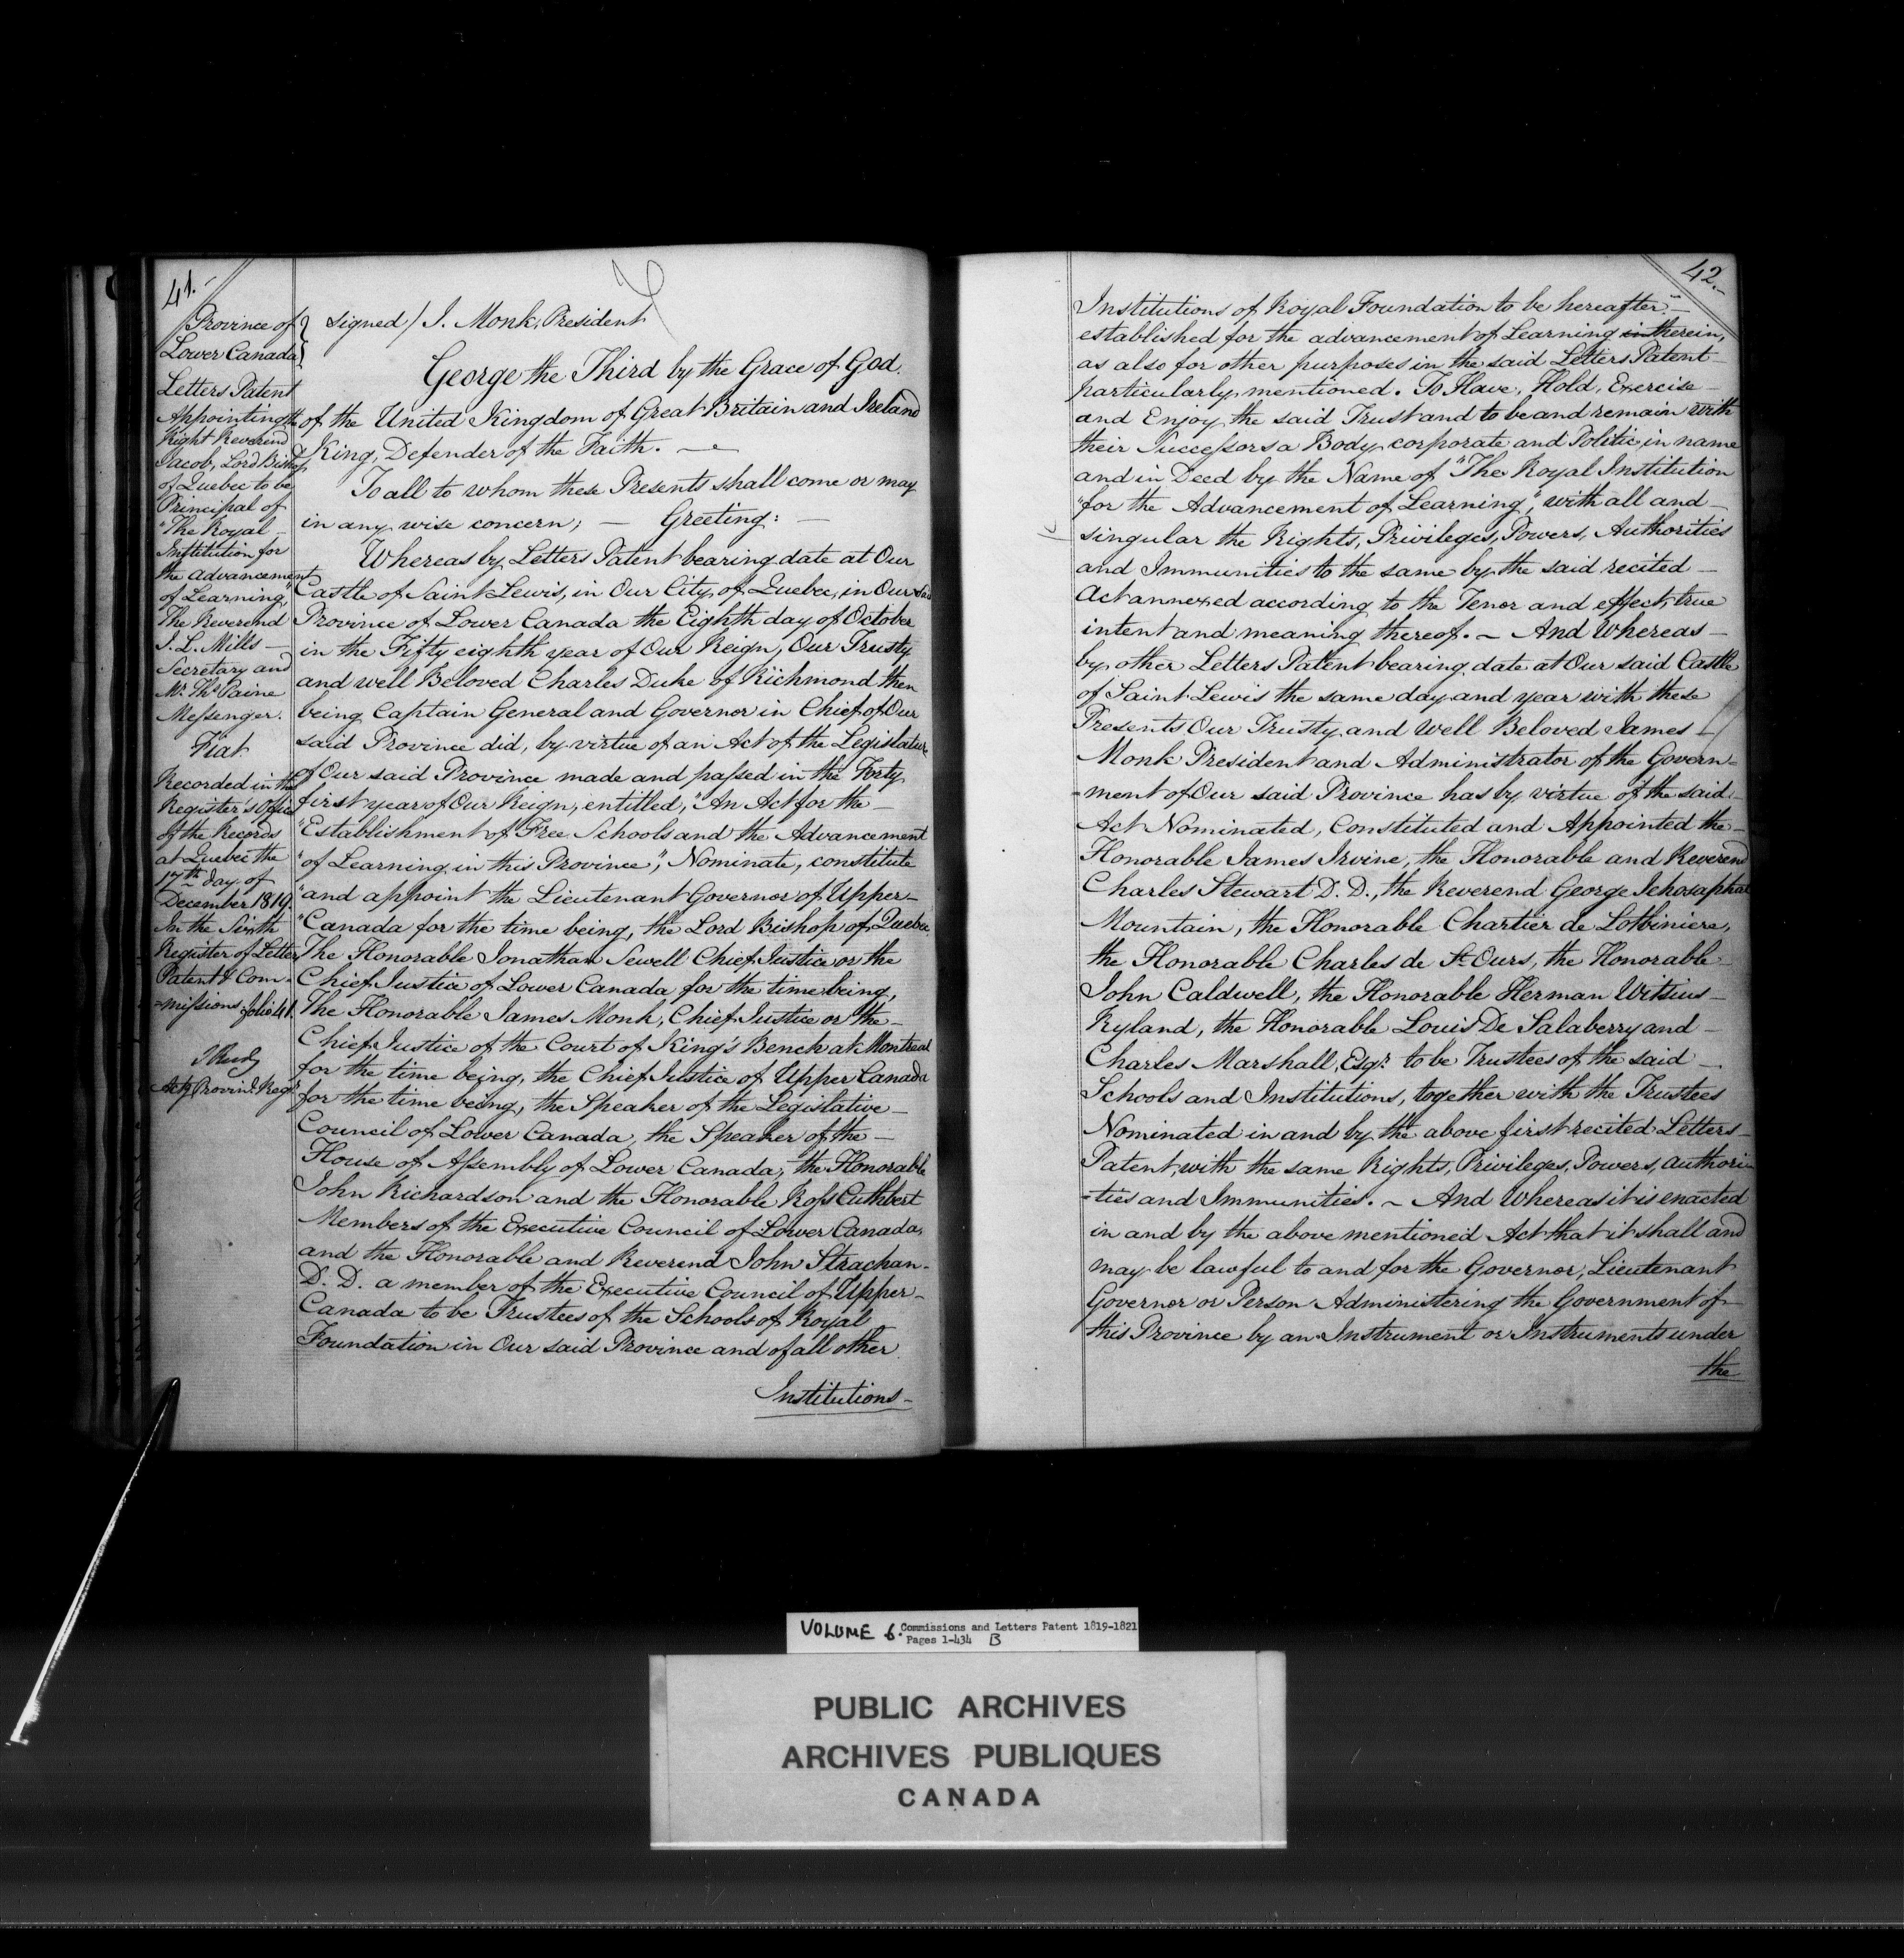 41.
Province of
Lower Canada
Letters Patent
Appointing the
Right Reverend
Jacob, Lord Bishop
of Quebec to be
Principal of
"The Royal
Institution for
the advancement
of Learning,"
The Reverend
J. L. Mills
Secretary and
Mr. Thos. Paine
Messenger.
Fiat.
Recorded in the
Register's Office
of the Records
at Quebec the
17th day of
December 1819.
In the Sixth
Register of Letters
Patent & Com-
=missions folio 41.
Actg Provinl. Regr.
signed / J. Monk, President
George the Third by the Grace of God.
of the United Kingdom of Great Britain and Ireland
King, Defender of the Faith. —
To all to whom these Presents shall come or may
in any wise concern; — Greeting: —
Whereas by Letters Patent bearing date at Our
Castle of Saint Lewis, in Our City of Quebec, in Our said
Province of Lower Canada the Eighth day of October
in the Fifty eighth year of Our Reign, Our Trusty
and well Beloved Charles Duke of Richmond then
being Captain General and Governor in Chief of Our
said Province did, by virtue of an Act of the Legislature
of Our said Province made and passed in the Forty
first year of Our Reign, entitled, "An Act for the —
"Establishment of Free Schools and the Advancement
"of Learning in this Province", Nominate, constitute
"and appoint the Lieutenant Governor of Upper —
"Canada for the time being, the Lord Bishop of Quebec,
The Honorable Jonathan Sewell Chief Justice or the
Chief Justice of Lower Canada for the time being,
The Honorable James Monk, Chief Justice or the —
Chief Justice of the Court of King's Bench at Montreal
for the time being, the Chief Justice of Upper Canada
for the time being, the Speaker of the Legislative —
Council of Lower Canada, the Speaker of the —
House of Assembly of Lower Canada, the Honorable
John Richardson and the Honorable Ross Cuthbert
Members of the Executive Council of Lower Canada,
and the Honorable and Reverend John Strachan —
D. D. a member of the Executive Council of Upper —
Canada to be Trustees of the Schools of Royal
Foundation in Our said Province and of all other
Institutions —
42.
Institutions of Royal Foundation to be hereafter —
established for the advancement of Learning in therein,
as also for other purposes in the said Letters Patent —
particularly mentioned. To Have, Hold, Exercise —
and Enjoy the said Trust and to be and remain with
their Successors a Body corporate and Politic in name
and in Deed by the Name of "The Royal Institution
"for the Advancement of Learning", with all and —
singular the Rights, Privileges, Powers, Authorities
and Immunities to the same by the said recited —
Act annexed according to the Tenor and effect, true
intent and meaning thereof. — And Whereas —
by other Letters Patent bearing date at Our said Castle
of Saint Lewis the same day and year with these
Presents Our Trusty and Well Beloved James —
Monk President and Administrator of the Govern=
=ment of Our said Province has by virtue of the said —
Act Nominated, Constituted and Appointed the —
Honorable James Irvine, the Honorable and Reverend
Charles Stewart D. D., the Reverend George Jehosaphat
Mountain, the Honorable Chartier de Lotbiniere,
the Honorable Charles de St. Ours, the Honorable
John Caldwell, the Honorable Herman Witsius —
Ryland, the Honorable Louis De Salaberry and —
Charles Marshall, Esqr. to be Trustees of the said —
Schools and Institutions, together with the Trustees
Nominated in and by the above first recited Letters —
Patent, with the same Rights, Privileges, Powers, Authori
=ties and Immunities. — And Whereas it is enacted
in and by the above mentioned Act that it shall and
may be lawful to and for the Governor, Lieutenant
Governor or Person Administering the Government of —
this Province by an Instrument or Instruments under
the
VOLUME 6. Commissions and Letters Patent 1819-1821
Pages 1-434 B
PUBLIC ARCHIVES
ARCHIVES PUBLIQUES
CANADA